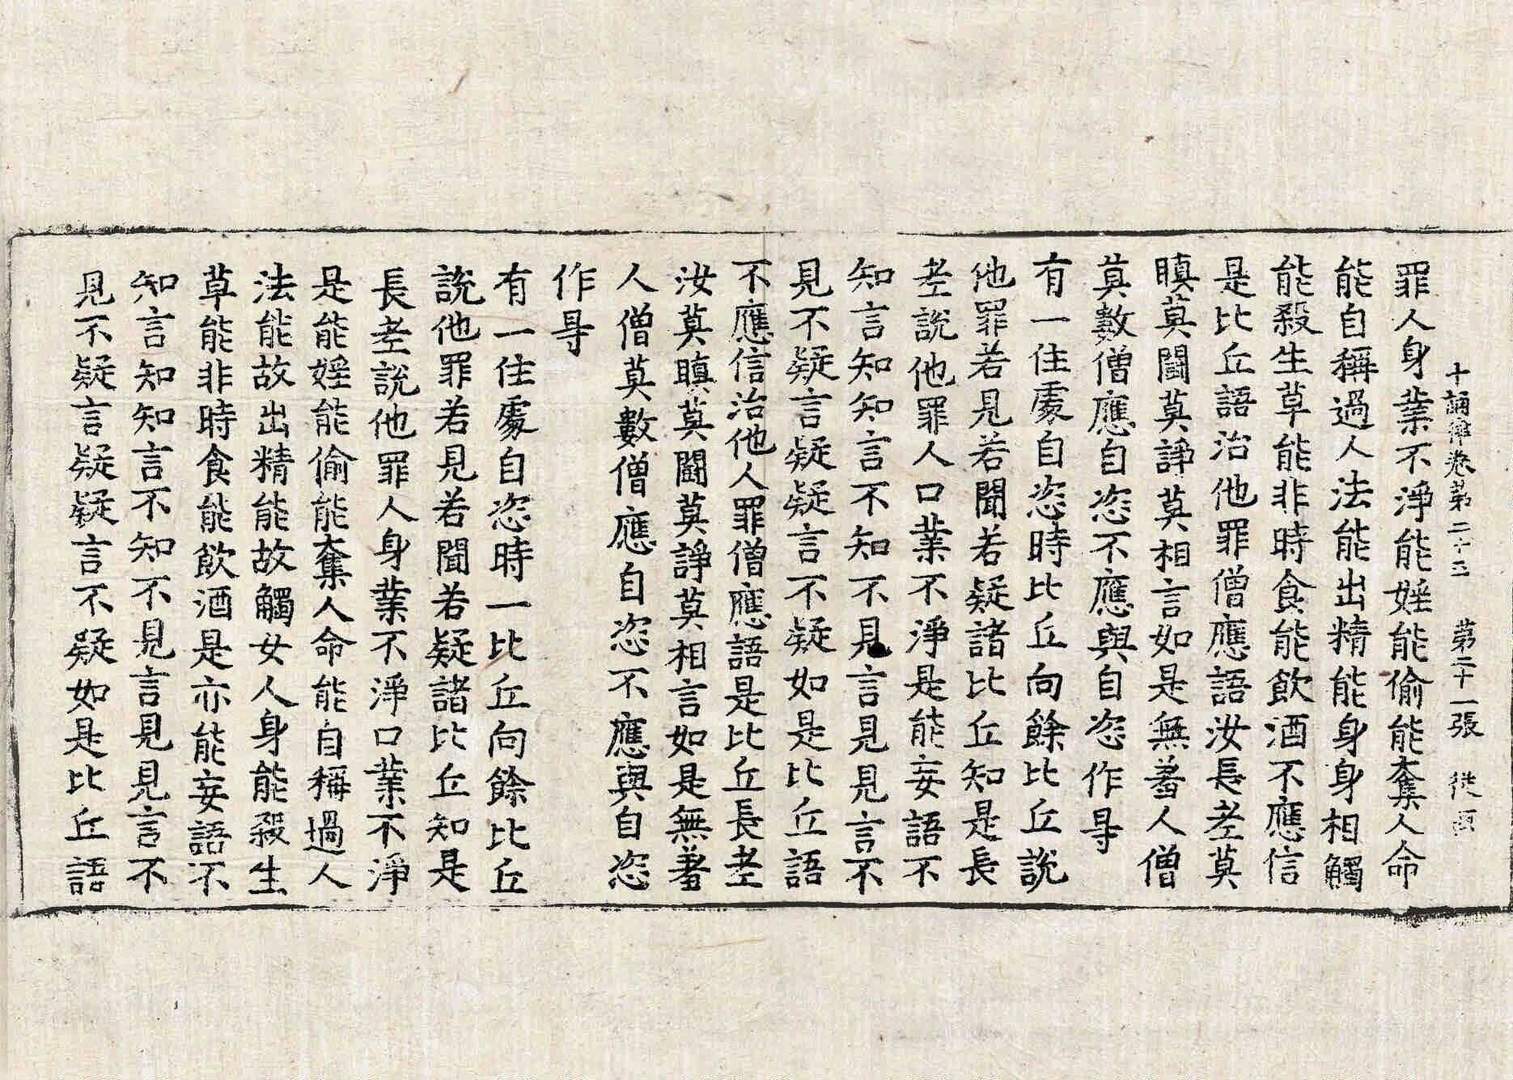 十誦律卷第二十三 第二十一張 従
罪人身業不淨能婬能偷能奪人命
能自稱過人法能出精能身身相觸
能殺生草能非時食能飲酒不應信
是比丘語治他罪僧應語汝長老莫
瞋莫鬪莫諍莫相言如是無羞人僧
莫數僧應自恣不應與自恣作㝵
有一住處自恣時比丘向餘比丘說
他罪若見若聞若疑諸比丘知是長
老說他罪人口業不淨是能妄語不
知言知知言不知不見言見見言不
見不疑言疑疑言不疑如是比丘語
不應信治他人罪僧應語是比丘長老
汝莫瞋莫鬪莫諍莫相言如是無羞
人僧莫數僧應自恣不應與自恣
作㝵
有一住處自恣時一比丘向餘比丘
說他罪若見若聞若疑諸比丘知是
長老說他罪人身業不淨口業不淨
是能婬能偷能奪人命能自稱過人
法能故出精能故觸女人身能殺生
草能非時食能飲酒是亦能妄語不
知言知知言不知不見言見見言不
見不疑言疑疑言不疑如是比丘語